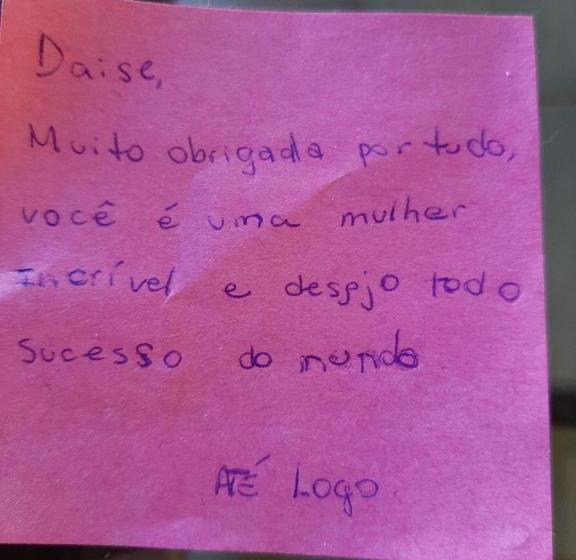 Daise,
Muito obrigada por tudo,
você é uma mulher
Incrível e desejo todo
Sucesso do mundo
ATÉ Logo